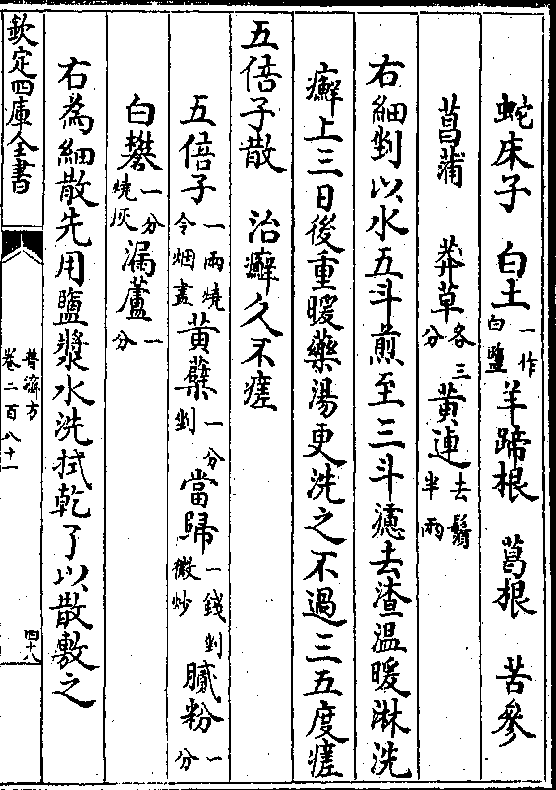 蛇床子　白土一作白鹽　羊蹄根　葛根　苦參
菖蒲　莽草各三分　黄連去鬚半兩
右細剉以水五斗煎至三斗濾去渣温暖淋洗
癬上三日後重暖藥湯更洗之不過三五度瘥
五倍子散　治癬久不瘥
五倍子一兩燒令烟盡　黄蘗一分剉　當歸一錢剉微炒　膩粉一分
白礬一分燒灰　漏蘆一分
右為細散先用鹽漿水洗拭乾了以散敷之
欽定四庫全書　普濟方卷二百八十一　四十八